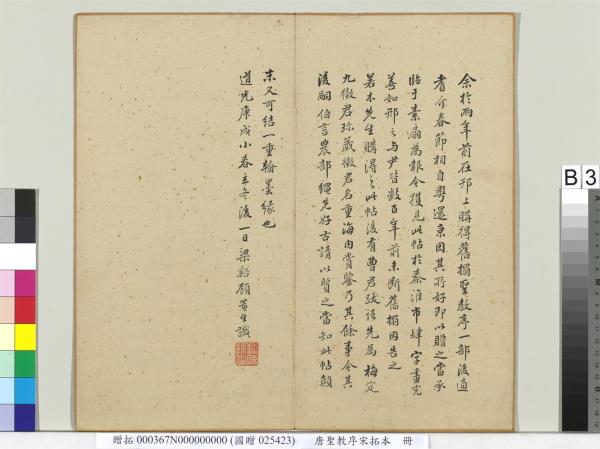 余於兩年前在邗上購得舊搨聖教序一部後適
耆介春節相自粵還京因其所好即以贈之當承
臨于素扇為報今獲見此帖於秦淮市肆字畫完
善如邢之与尹皆数百年前未断舊搨因告之
若木先生購得之此帖後有曹君跋語先為梅定
九徵君珍蔵徵君名重海内賞鑒乃其餘事今其
後嗣伯言農部繩先好古請以質之當知此帖顛
末又可結一重翰墨緣也
道光庚戌小春立冬後一日梁谿顧蓮生識
贈拓 000367N000000000 (國贈 025423) 唐聖教序宋拓本 冊
B 3